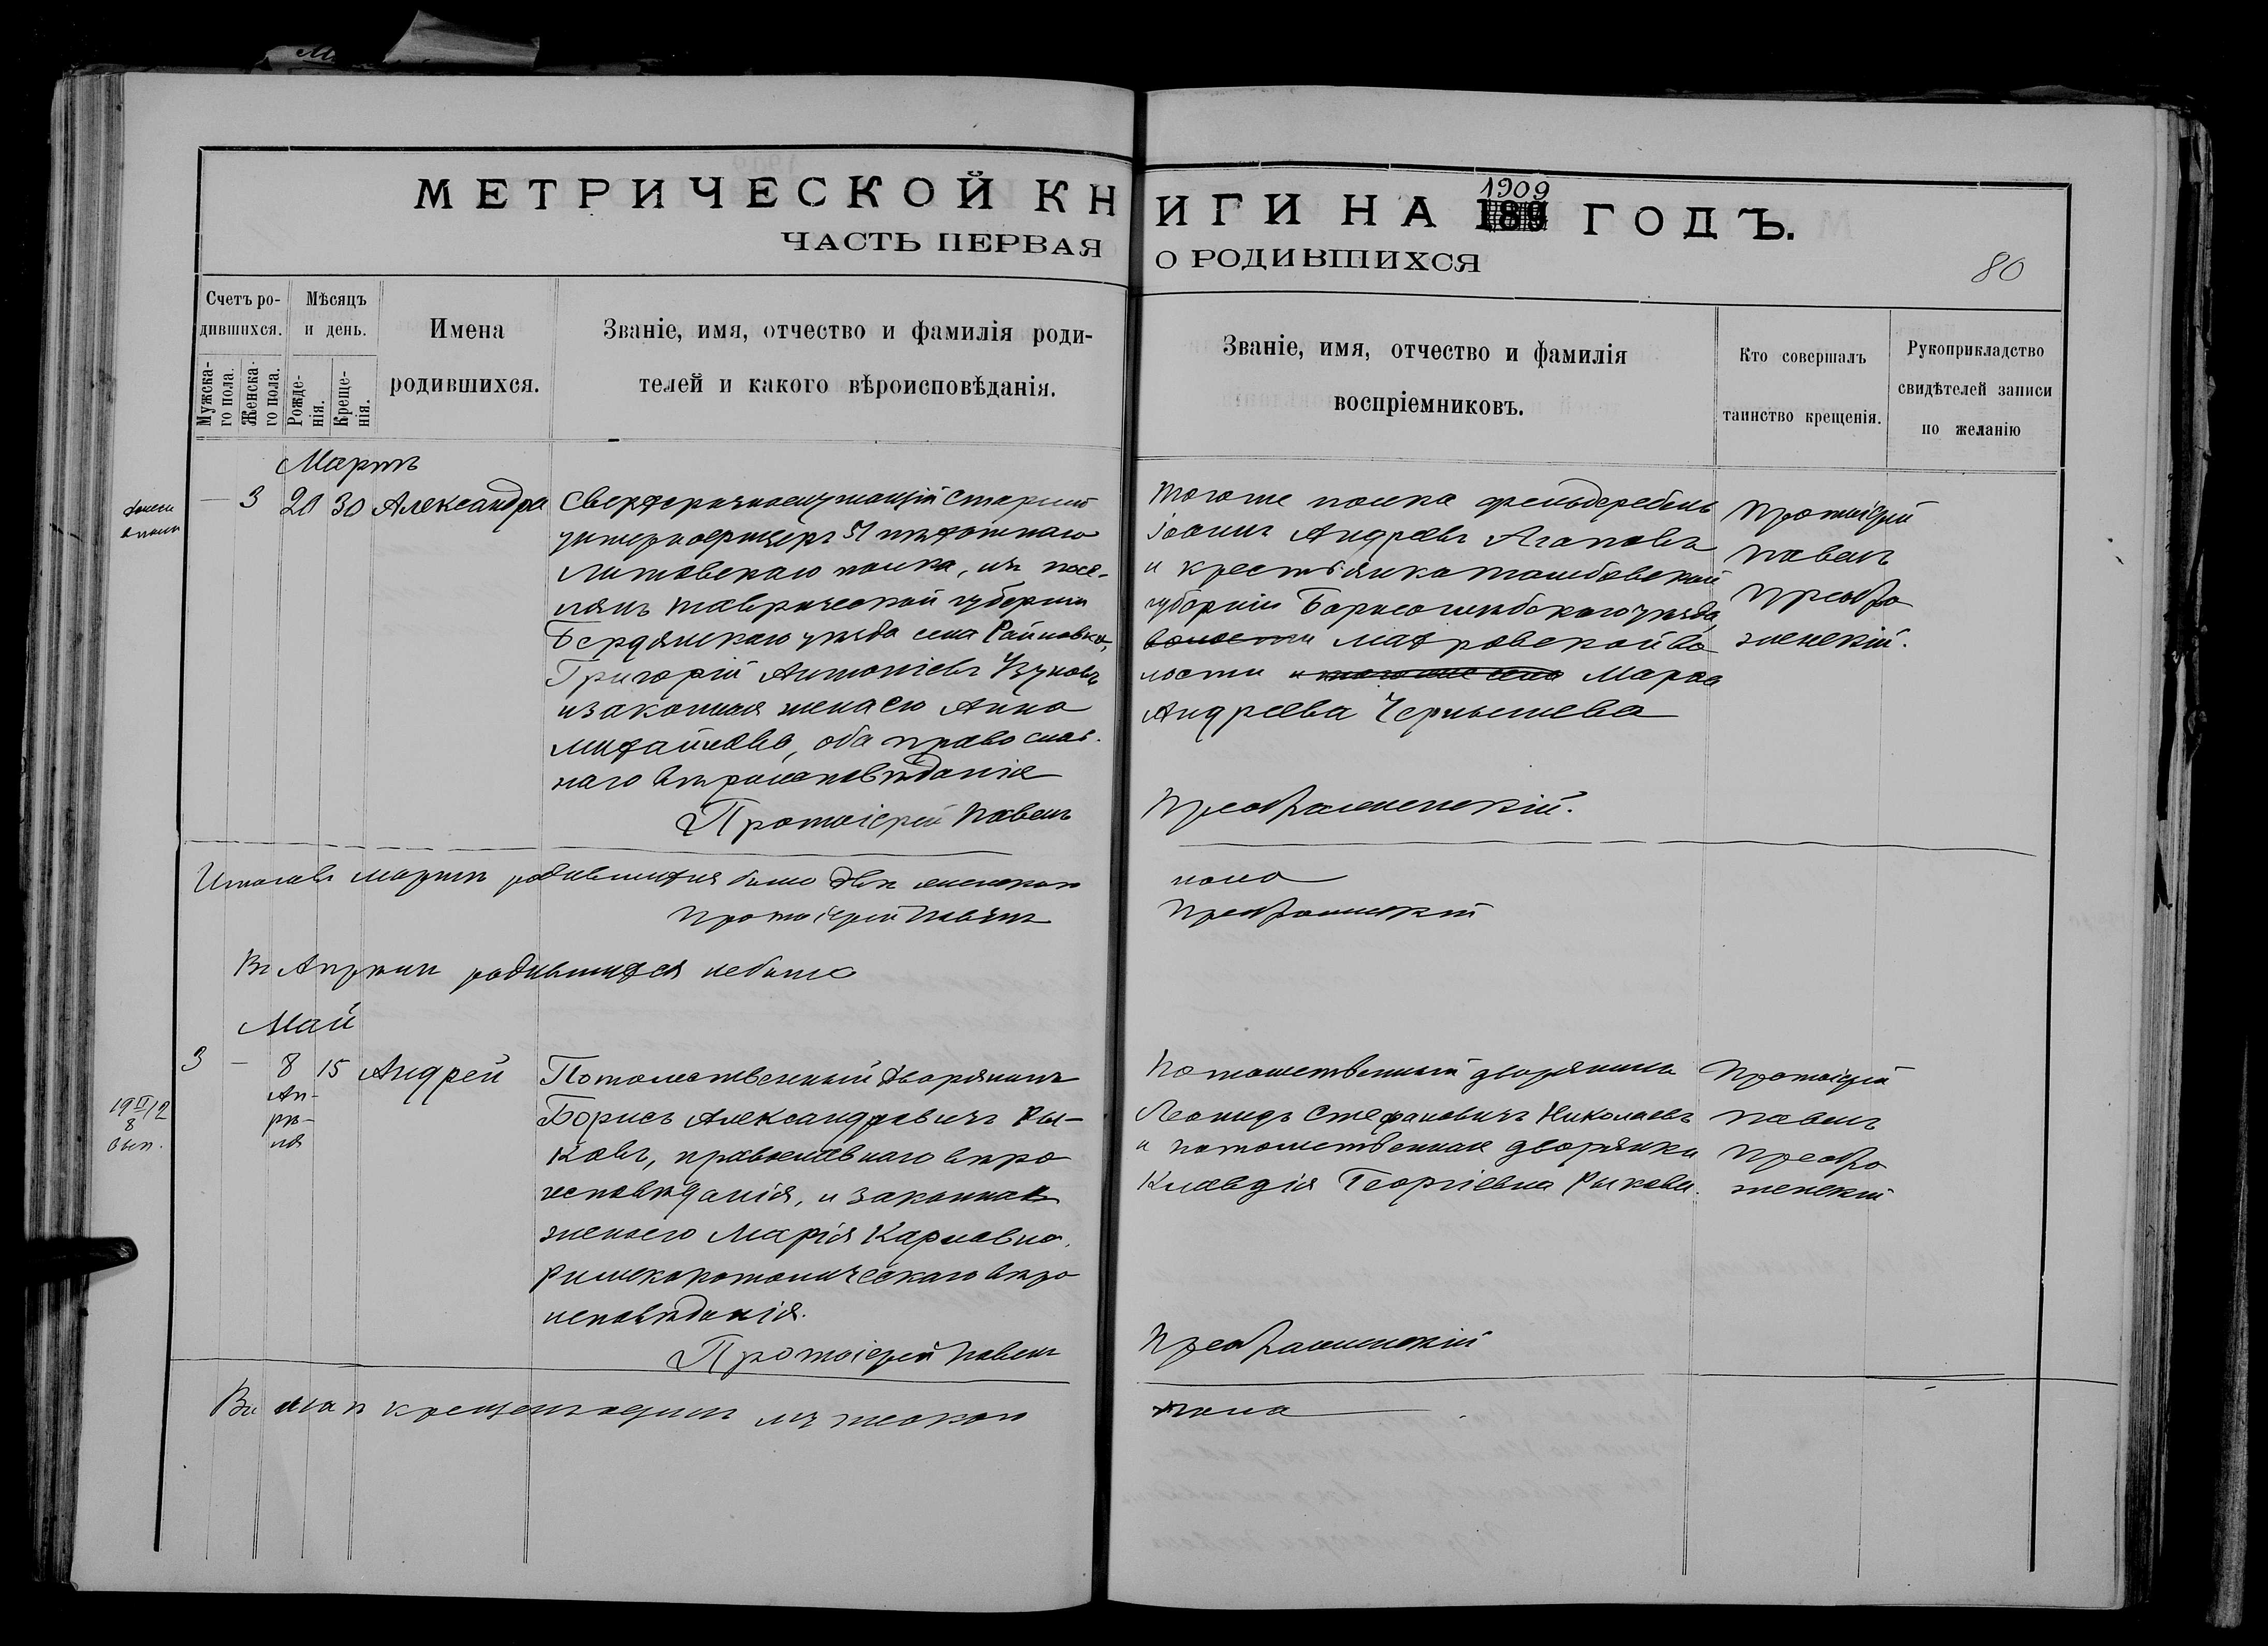 МЕТРИЧЕСКОЙ КНИГИ НА 1909 ГОДЪ.
ЧАСТЬ ПЕРВАЯ О РОДИВШИХСЯ
80
Счетъ ро-
дившихся.
Мужска-
го пола.
Женска-
го пола.
Мѣсяцъ
и день.
Рожде-
нія.
Креще-
нія.
Имена
родившихся.
Званіе, имя, отчество и фамилія роди-
телей и какого вѣроисповѣданія.
Званіе, имя, отчество и фамилія
воспріемниковъ.
Кто совершалъ
таинство крещенія.
Рукоприкладство
свидѣтелей записи
по желанію
Мартъ
— 3 20 30 Александра
Сверхсрочнослужащій старшій
унтеръ-офицеръ 51 пѣхотнаго
Литовскаго полка, изъ посе-
лянъ Таврической губерніи
Бердянскаго уѣзда села Райновка,
Григорій Антоніевъ
и законная жена его Анна
Михайлова, оба православ-
наго вѣроисповѣданія
Протоіерей Павелъ
Тогоже полка фельдфебель
Іоаннъ Андреевъ Агаповъ
и крестьянка Тамбовской
губерніи Борисоглѣбскаго уѣзда,
волости
лости и тогоже села Марѳа
Андреева Чернышева
Преображенскій.
Протоіерей
Павелъ
Преобра
женскій.
Итого въ мартѣ родившихся было двѣ женскаго
пола
Протоіерей Павелъ
Преображенскій
Въ Апрѣлѣ родившихся не было
Май
3 — 8 15 Андрей
Ап-
рѣ-
ля
19 II/8 12
вып.
Потомственный дворянинъ
Борисъ Александровичъ Ры-
ковъ, православнаго вѣро
исповѣданія, и законная
жена его Марія Карловна,
Римскокатолическаго вѣро
исповѣданія.
Протоіерей Павелъ
Потомственный дворянинъ
Леонидъ Стефановичъ Николаевъ
и потомственная дворянка
Клавдія Георгіевна Рыкова.
Преображенскій
Протоіерей
Павелъ
Преобра
женскій
Въ маѣ крещенъ одинъ мужескаго
пола